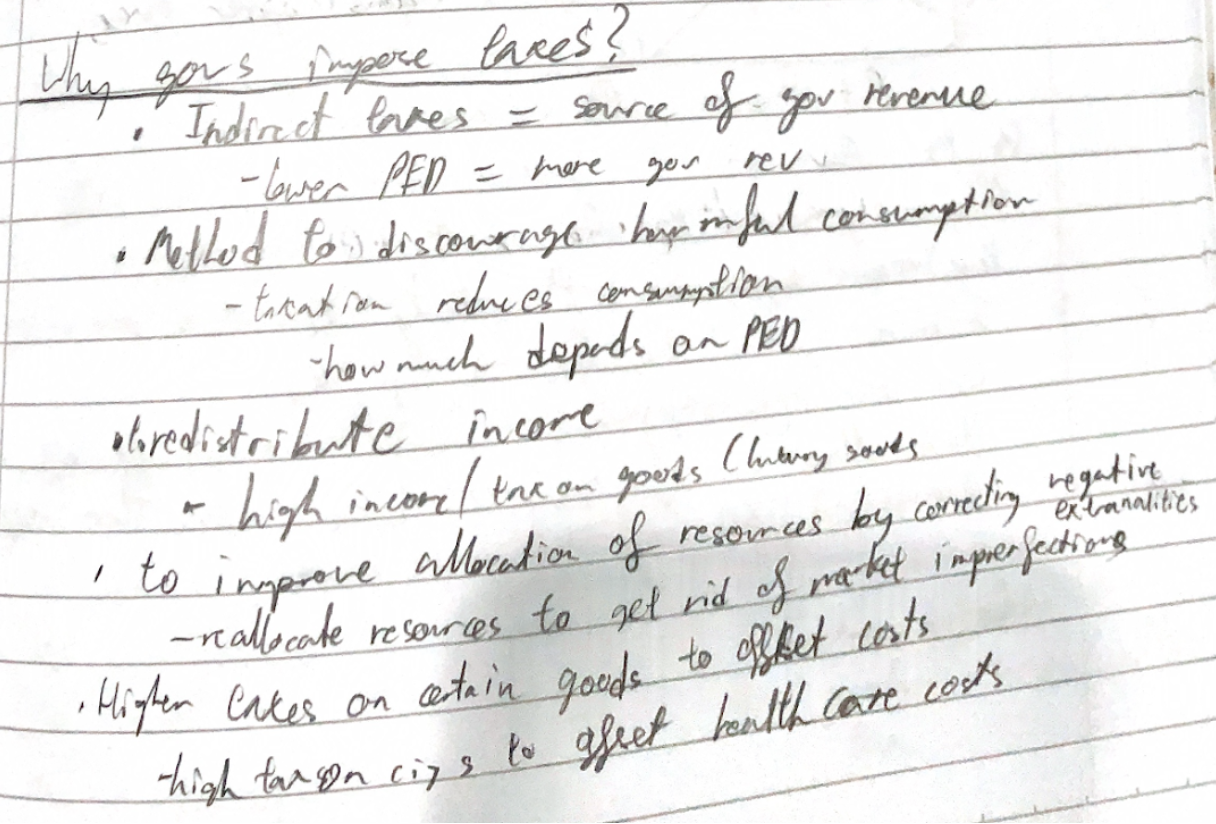 Why govs impose taxes?
• Indirect taxes = source of gov revenue
- lower PED = more gov rev.
• Method to discourage harmful consumption
- taxation reduces consumption
- how much depends on PED
• to redistribute income
- high income / tax on goods (luxury goods
• to improve allocation of resources by correcting negative extranalities
- reallocate resources to get rid of market imperfections
• Higher taxes on certain goods to offset costs
- high tax on cigs to offset health care costs